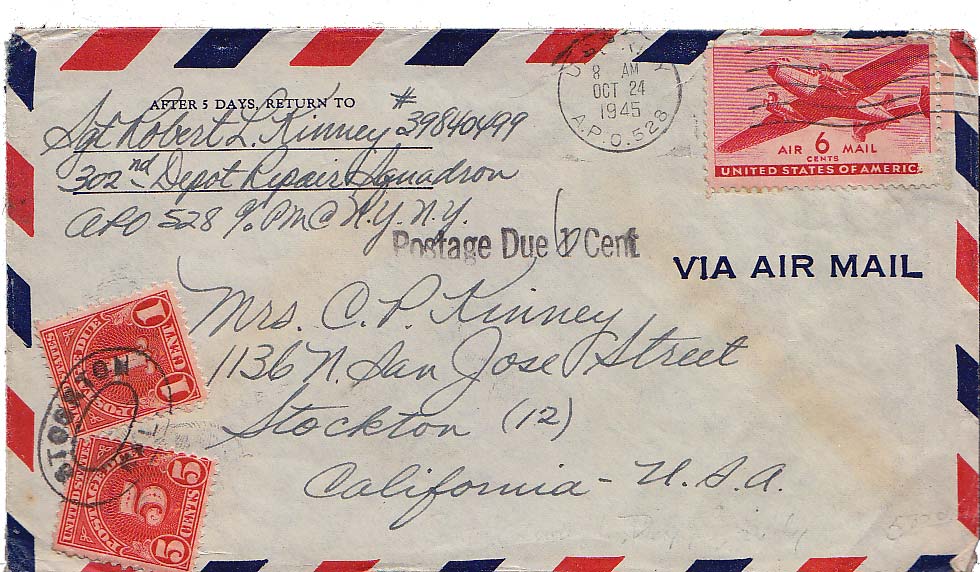 AFTER 5 DAYS, RETURN TO
Sgt Robert L. Kinney #39840499
302nd Depot Repair Squadron
APO 528 % PM N.Y. N.Y.
8 AM
OCT 24
1945
A.P.O. 528
AIR 6 MAIL
CENTS
UNITED STATES OF AMERICA
Postage Due 6 Cent
VIA AIR MAIL
Mrs. C. P. Kinney
1136 N. San Jose Street
Stockton (12)
California - U.S.A.
1 CENT 1
STOCKTON
5 CENTS 5